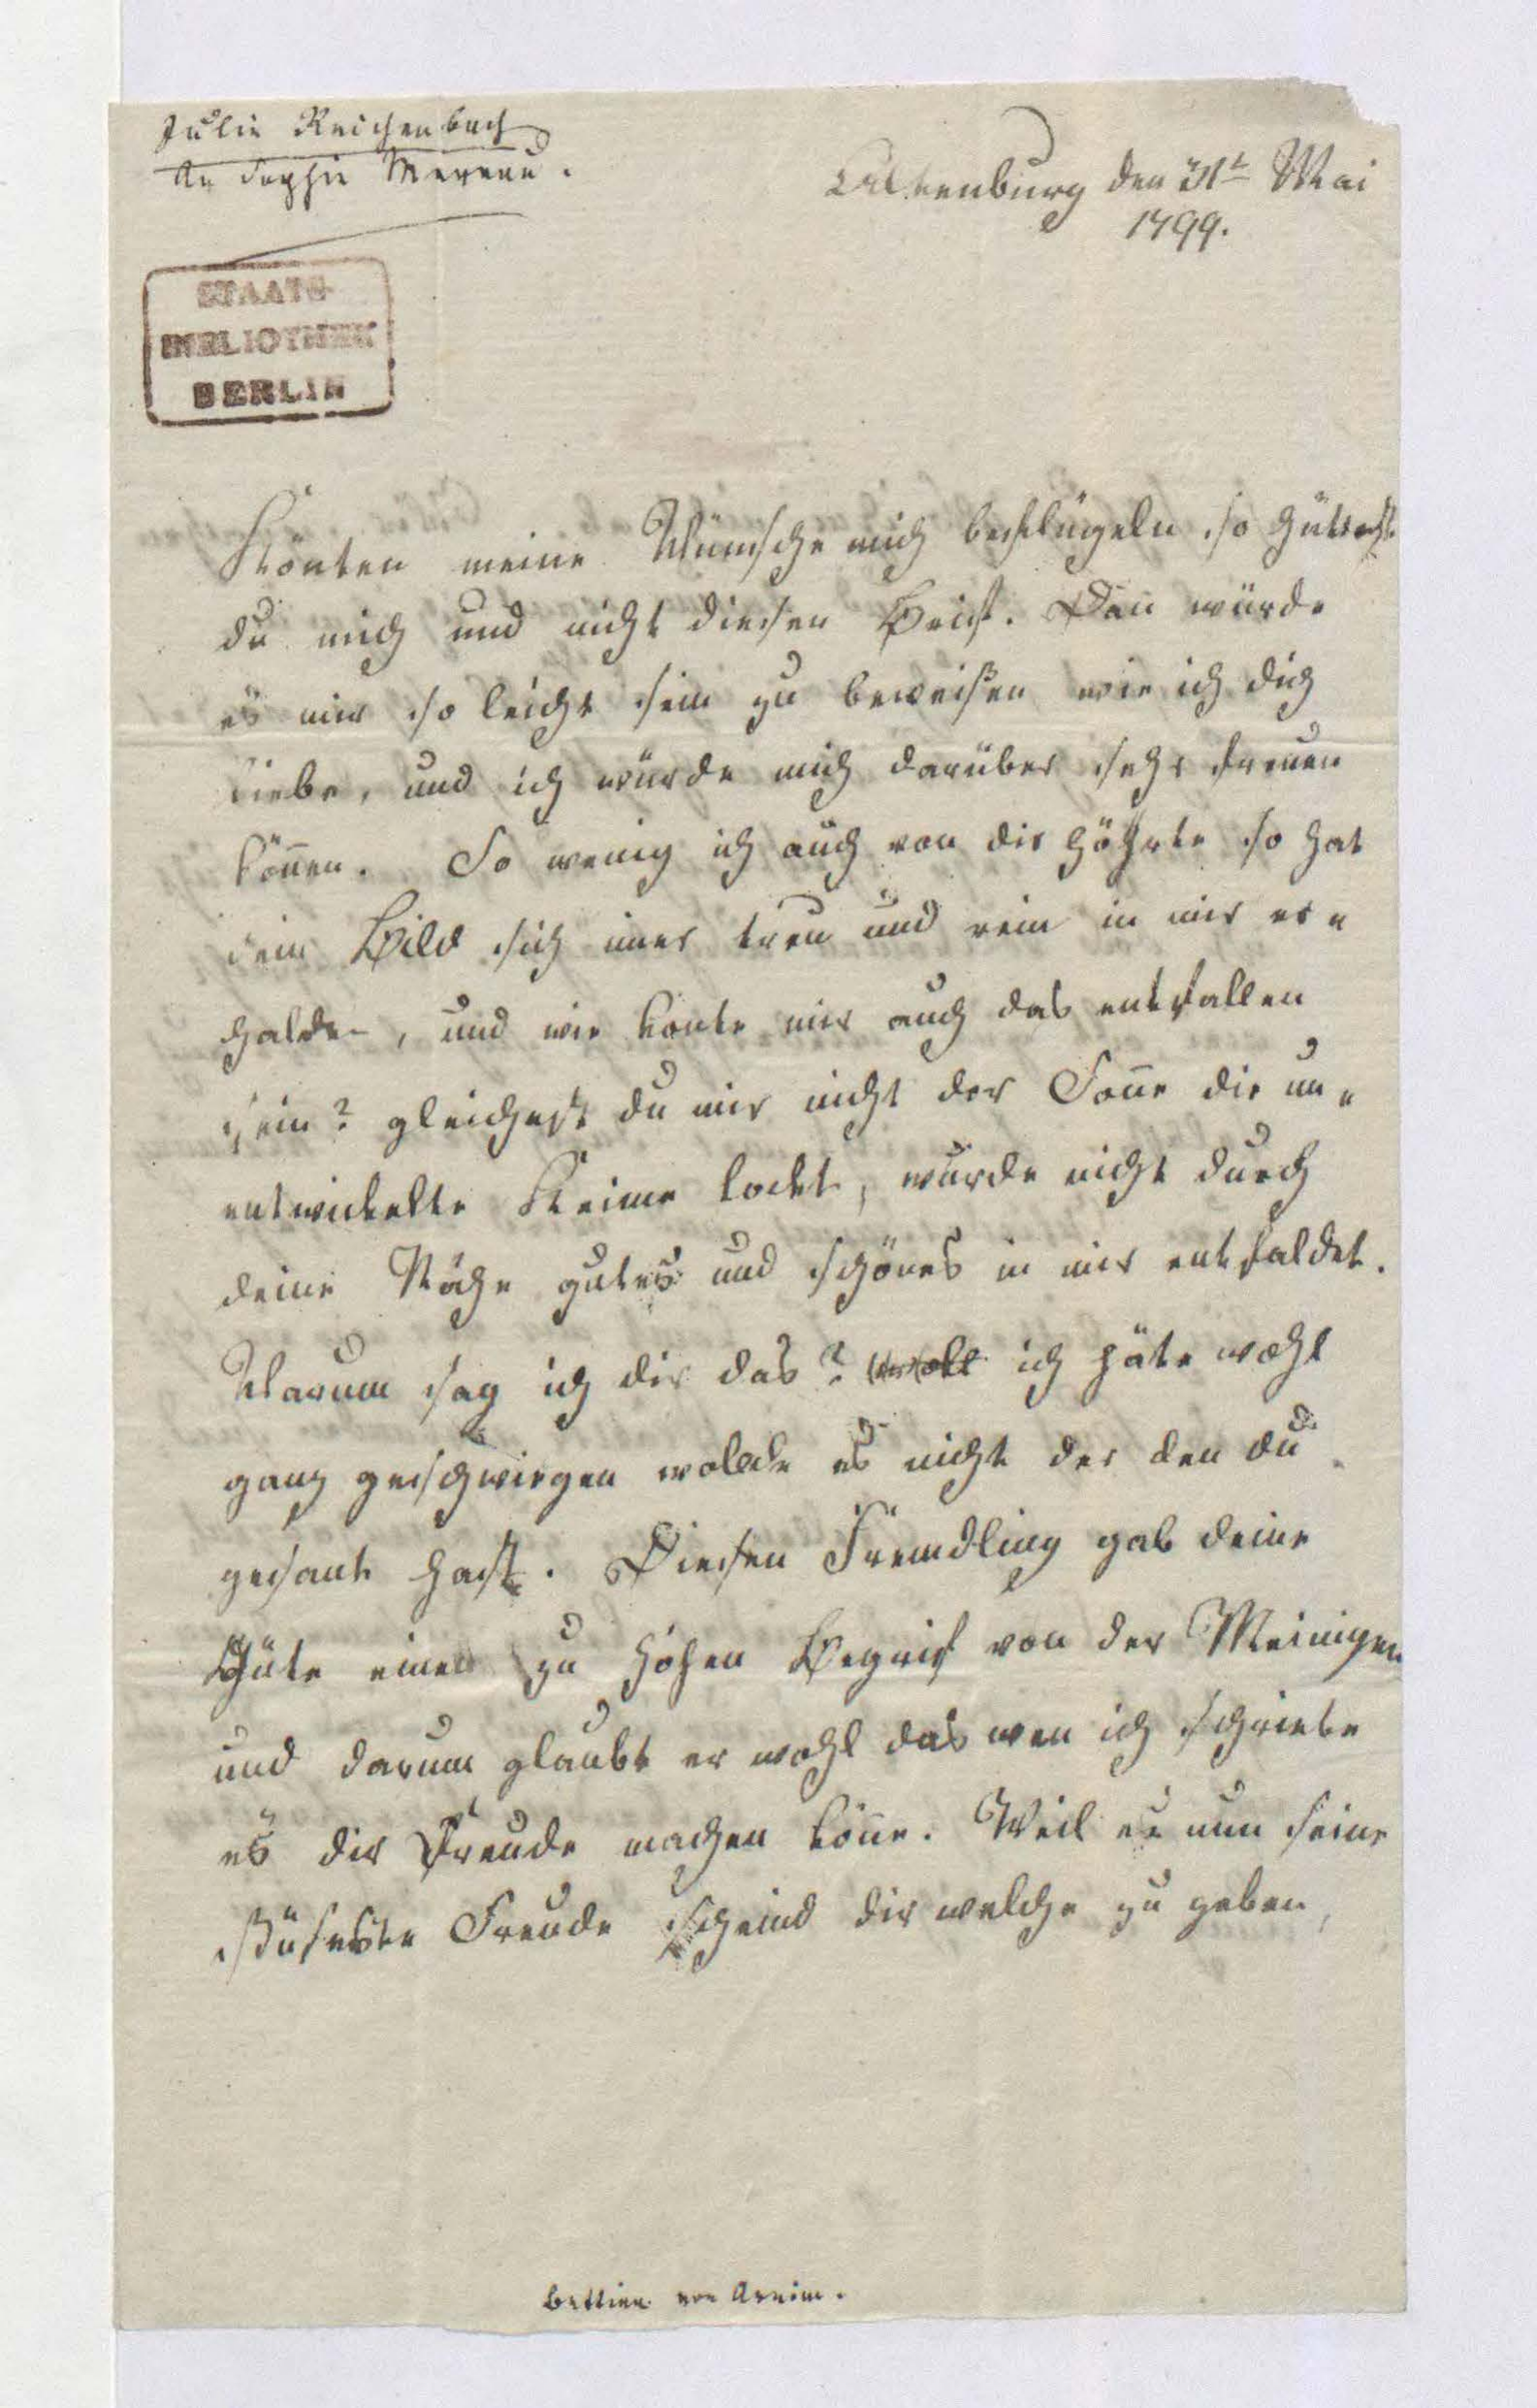 Julie Reichenbach
An Sophie Mereau.
Altenburg den 31t Mai
1799.
STAATS-
BIBLIOTHEK
BERLIN
Könten meine Wünsche mich beflügeln so hättest
du mich und nicht diesen Brief. Dan̄ würde
es mir so leicht sein zu beweißen wie ich dich
liebe, und ich würde mich darüber sehr freuen
kön̄en. So wenig ich auch von dir höhrte so hat
dein Bild sich im̄er treu und rein in mir er=
halden, und wie konte mir auch das entfallen
sein? gleichest du mir nicht der Son̄e die un=
entwickelte Keime lockt, wurde nicht durch
deine Nähe gutes und schönes in mir entfaldet.
Warum sag ich dir das? ich häte wohl
ganz geschwiegen wollde es nicht der den du
gesant hast. Diesen Fremdling gab deine
Güte einen zu hohen Begrif von der Meinigen
und darum glaubt er wohl das wen ich schriebe
es dir Freude machen kön̄e. Weil es nun seine
süseste Freude scheind dir welche zu geben,
Bettina von Arnim.